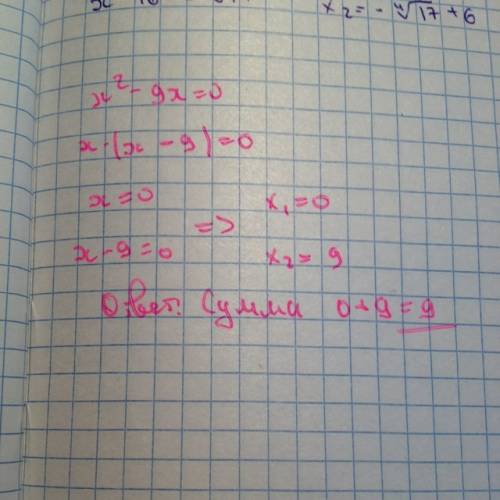 x₂ = - ∜17 + 6
x² - 9x = 0
x · (x - 9) = 0
x = 0
x - 9 = 0
=>
x₁ = 0
x₂ = 9
Ответ: Сумма 0 + 9 = 9